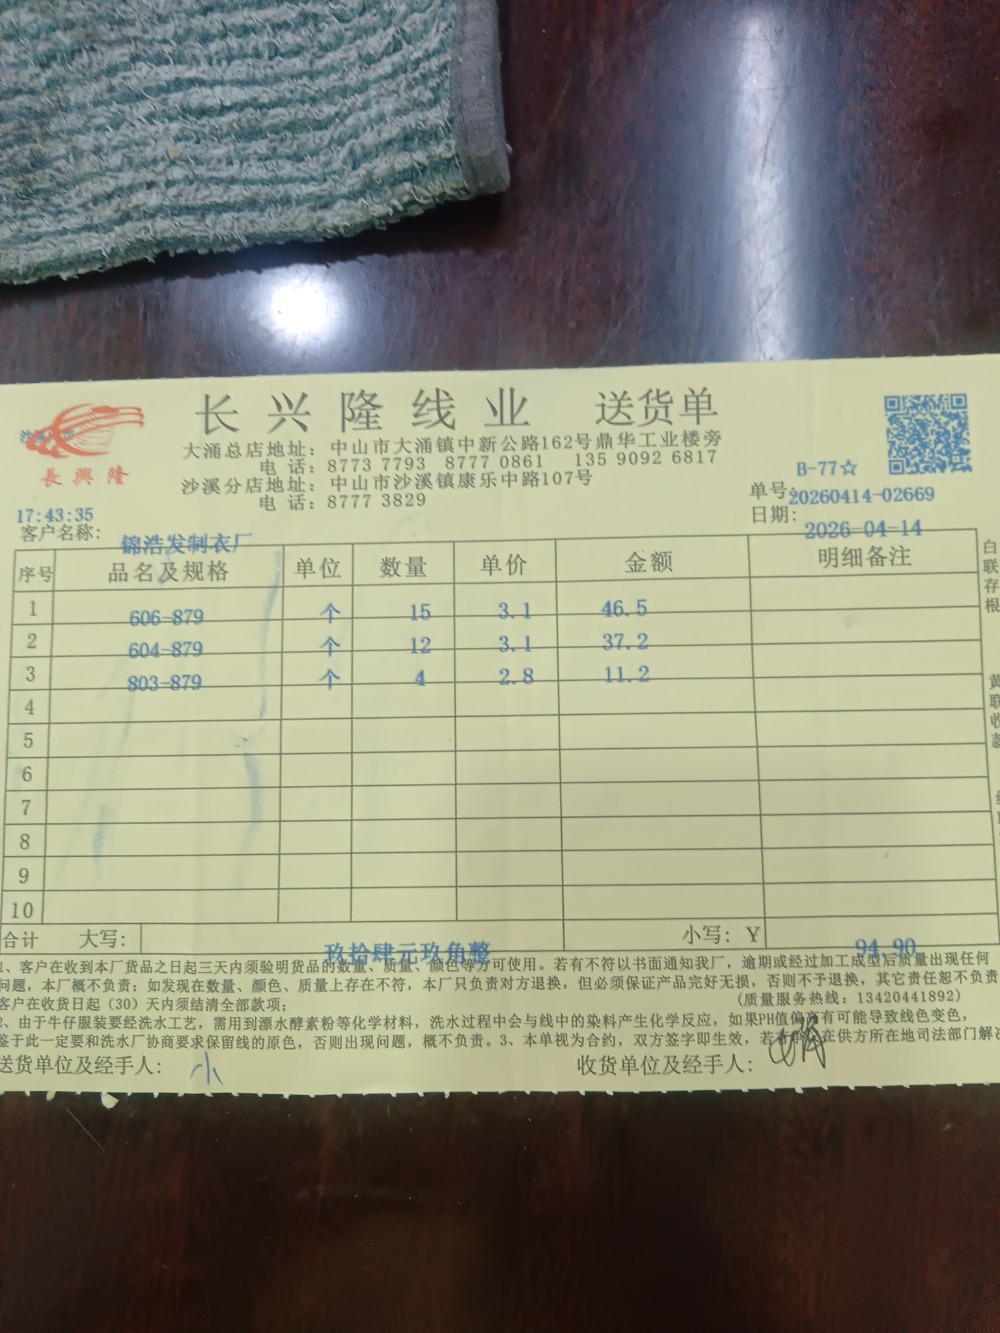 長興隆
长兴隆线业 送货单
大涌总店地址：中山市大涌镇中新公路162号鼎华工业楼旁
电话：8773 7793 8777 0861 135 9092 6817
沙溪分店地址：中山市沙溪镇康乐中路107号
电话：8777 3829
B-77☆
单号：20260414-02669
日期：2026-04-14
17:43:35
客户名称：锦浩发制衣厂
序号 品名及规格 单位 数量 单价 金额 明细备注
1 606-879 个 15 3.1 46.5
2 604-879 个 12 3.1 37.2
3 803-879 个 4 2.8 11.2
4
5
6
7
8
9
10
合计 大写：玖拾肆元玖角整 小写：Y 94.90
1、客户在收到本厂货品之日起三天内须验明货品的数量、质量、颜色等方可使用。若有不符以书面通知我厂，逾期或经过加工成型后质量出现任何
问题，本厂概不负责；如发现在数量、颜色、质量上存在不符，本厂只负责对方退换，但必须保证产品完好无损，否则不予退换，其它责任恕不负责
客户在收货日起（30）天内须结清全部款项；
（质量服务热线：13420441892）
2、由于牛仔服装要经洗水工艺，需用到漂水酵素粉等化学材料，洗水过程中会与线中的染料产生化学反应，如果PH值偏高有可能导致线色变色，
鉴于此一定要和洗水厂协商要求保留线的原色，否则出现问题，概不负责。3、本单视为合约，双方签字即生效，若有 在供方所在地司法部门解决
送货单位及经手人：小
收货单位及经手人：
白联存根
黄联收款